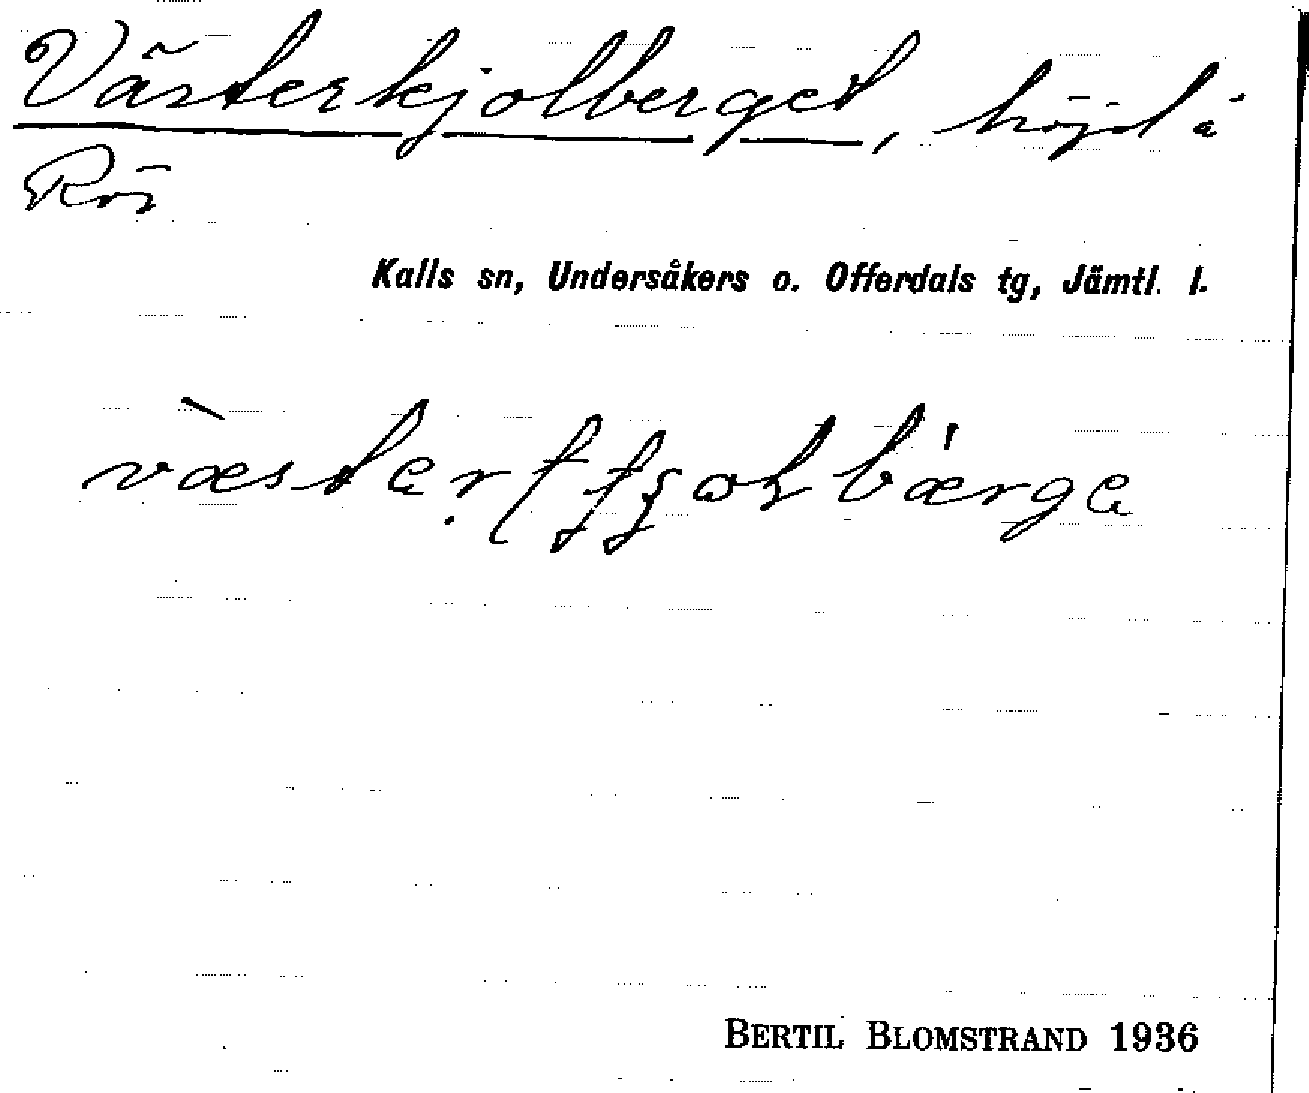 Västerkjolberget, höjd i
Rö
Kalls sn, Undersåkers o. Offerdals tg, Jämtl. l.
BERTIL BLOMSTRAND 1936